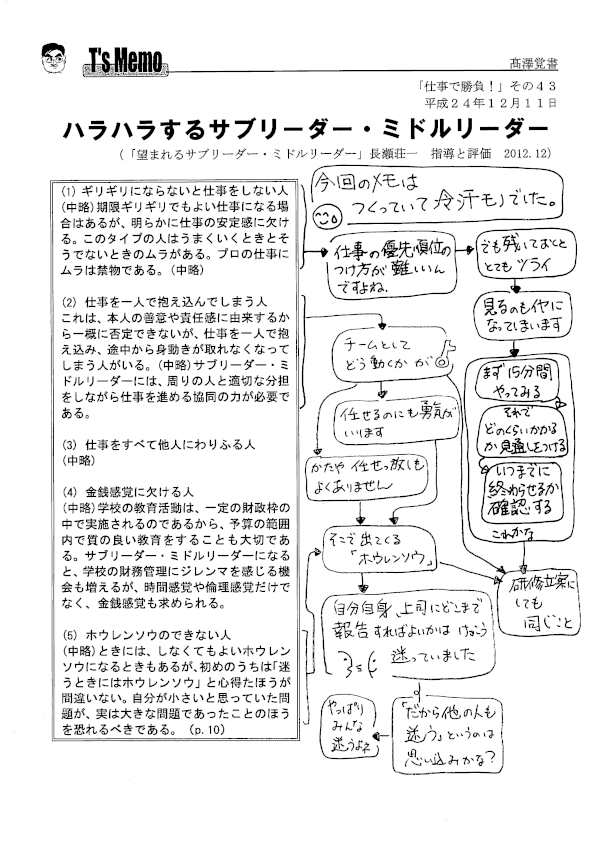 T's Memo
髙澤覚書
「仕事で勝負！」その４３
平成２４年１２月１１日
ハラハラするサブリーダー・ミドルリーダー
(「望まれるサブリーダー・ミドルリーダー」長瀬荘一　指導と評価　2012.12)
(1) ギリギリにならないと仕事をしない人
(中略)期限ギリギリでもよい仕事になる場
合はあるが、明らかに仕事の安定感に欠け
る。このタイプの人はうまくいくときとそ
うでないときのムラがある。プロの仕事に
ムラは禁物である。(中略)
(2) 仕事を一人で抱え込んでしまう人
これは、本人の善意や責任感に由来するか
ら一概に否定できないが、仕事を一人で抱
え込み、途中から身動きが取れなくなって
しまう人がいる。(中略)サブリーダー・ミ
ドルリーダーには、周りの人と適切な分担
をしながら仕事を進める協同の力が必要で
ある。
(3) 仕事をすべて他人にわりふる人
(中略)
(4) 金銭感覚に欠ける人
(中略)学校の教育活動は、一定の財政枠の
中で実施されるのであるから、予算の範囲
内で質の良い教育をすることも大切であ
る。サブリーダー・ミドルリーダーになる
と、学校の財務管理にジレンマを感じる機
会も増えるが、時間感覚や倫理感覚だけで
なく、金銭感覚も求められる。
(5) ホウレンソウのできない人
(中略)ときには、しなくてもよいホウレン
ソウになるときもあるが、初めのうちは「迷
うときにはホウレンソウ」と心得たほうが
間違いない。自分が小さいと思っていた問
題が、実は大きな問題であったことのほう
を恐れるべきである。(p.10)
今回のメモは
つくっていて冷汗モノでした。
仕事の優先順位の
つけ方が難しいん
ですよね.
でも残しておくと
とてもツライ
見るのもイヤに
なってしまいます
まず15分間
やってみる
それで
どのくらいかかる
か見通しをつける
いつまでに
終わらせるか
確認する
これかな
チームとして
どう動くかが
任せるのにも勇気が
いります
かたや任せっ放しも
よくありません
そこで出てくる
「ホウレンソウ」
研修立案に
しても
同じこと
自分自身、上司にどこまで
報告すればよいかは けっこう
迷っていました
「だから他の人も
迷う」というのは
思い込みかな？
やっぱり
みんな
迷うよネ